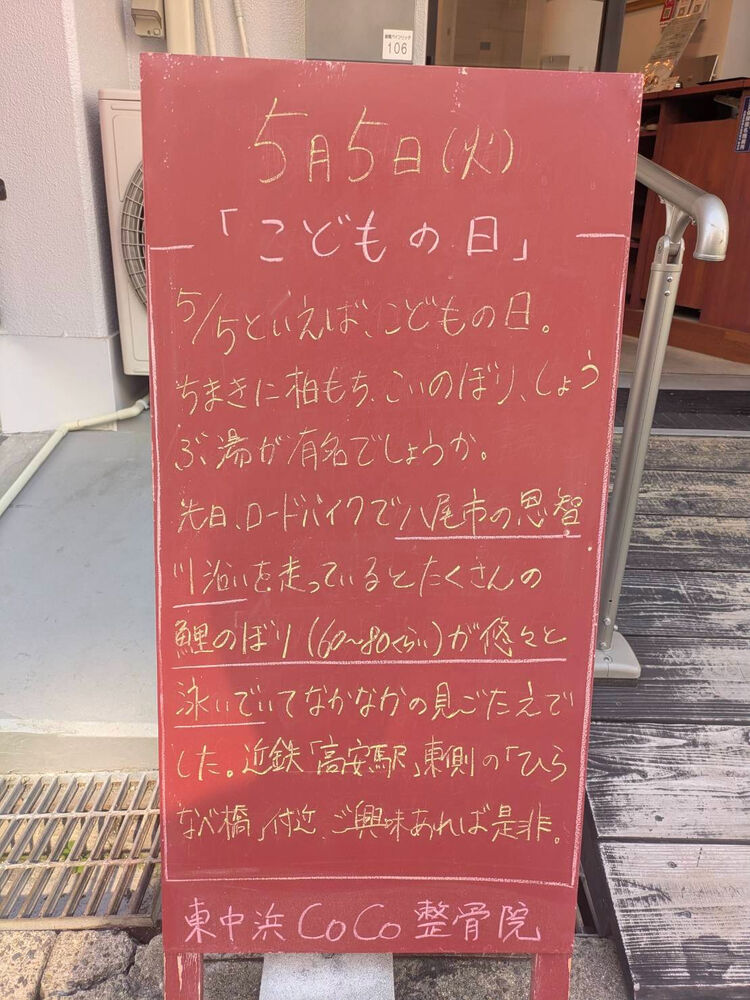 106
5月5日(火)
「こどもの日」
5/5といえば、こどもの日。
ちまきに柏もち、こいのぼり、しょう
ぶ湯が有名でしょうか。
先日、ロードバイクで八尾市の恩智
川沿いを走っているとたくさんの
鯉のぼり(60〜80くらい)が悠々と
泳いでいてなかなかの見ごたえで
した。近鉄「高安駅」東側の「ひら
なべ橋」付近、ご興味あれば是非。
東中浜CoCo整骨院